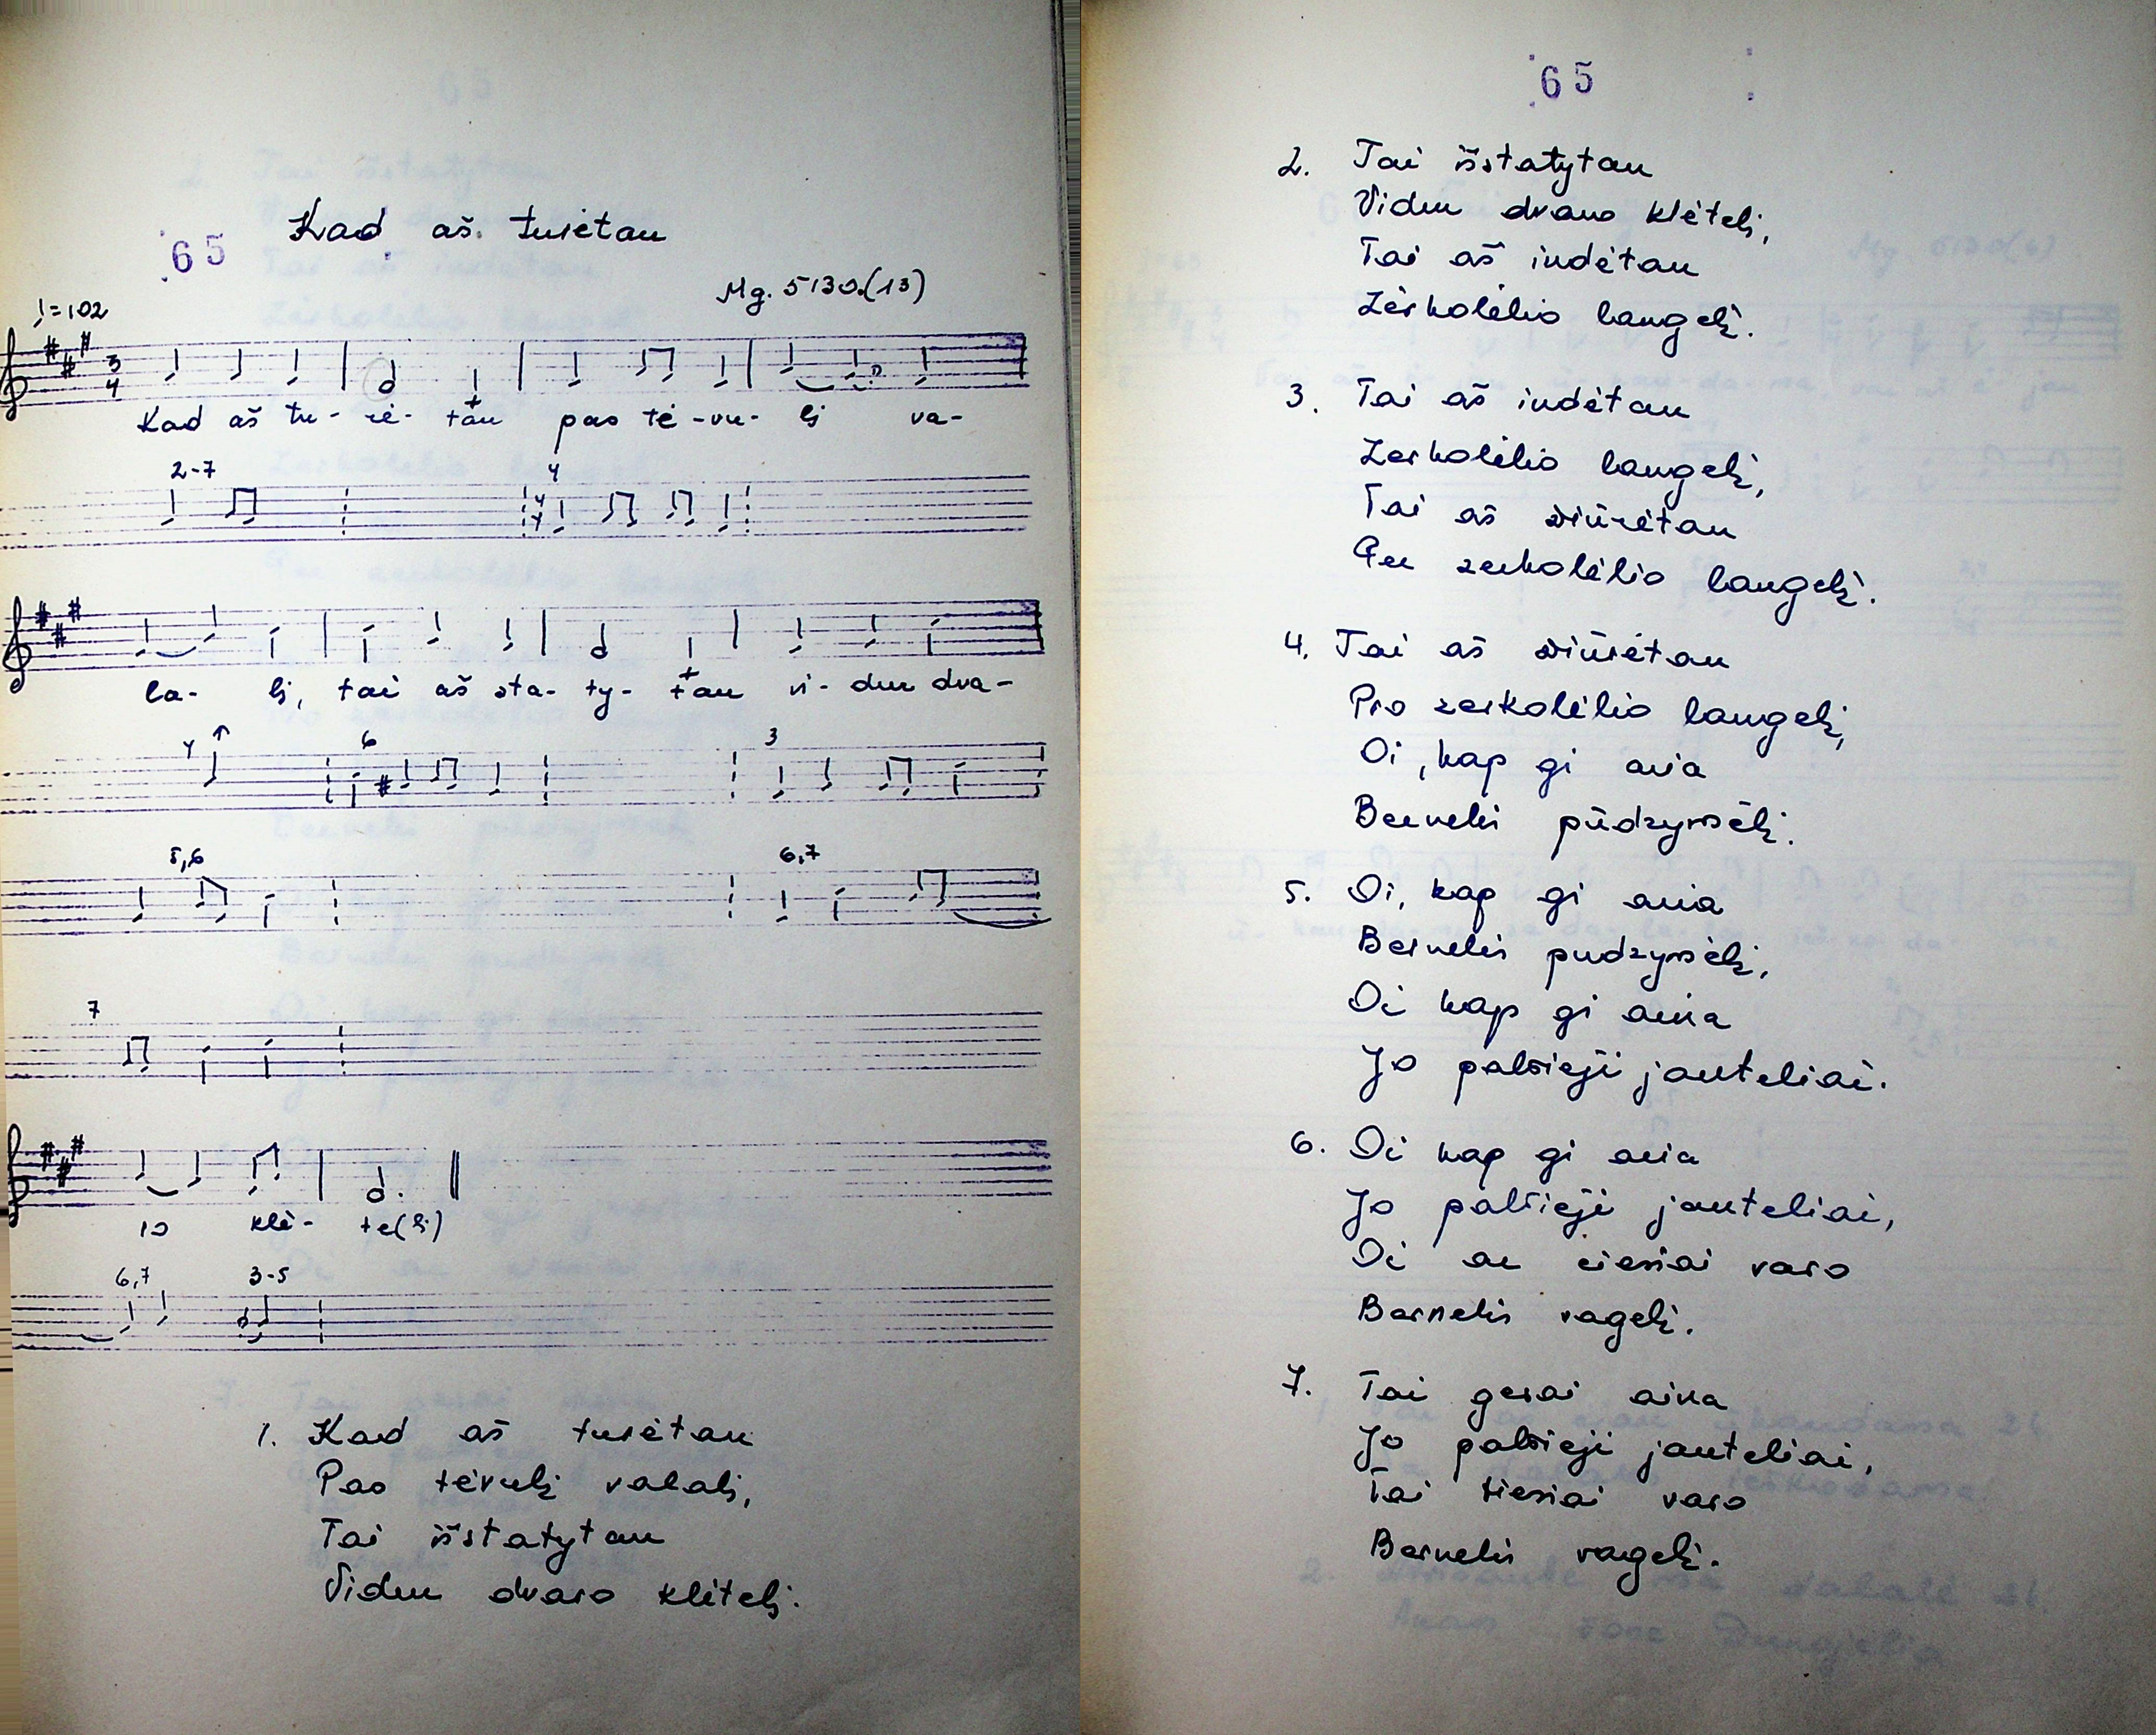 65
Kad aš turėtau
Mg. 5130(13)
♩=102
3
4
Kad aš tu- rė- tau pas tė-vu- lį va-
2-7
4
4
4
la- lį, tai aš sta- ty- tau vi- dur dva-
4
6
3
5,6
6,7
7
ro klė- te(lį)
6,7
3-5
1. Kad aš turėtau
Pas tėvulį valalį,
Tai išstatytau
Vidur dvaro klėtelį.
65
2. Tai išstatytau
Vidur dvaro klėtelį,
Tai aš indėtau
Zerkolėlio langelį.
3. Tai aš indėtau
Zerkolėlio langelį,
Tai aš žiūrėtau
Per zerkolėlio langelį.
4. Tai aš žiūrėtau
Pro zerkolėlio langelį,
Oi, kap gi aria
Bernelis pūdzymėlį.
5. Oi, kap gi aria
Bernelis pudzymėlį,
Oi kap gi aina
Jo palšieji jauteliai.
6. Oi kap gi aria
Jo palšieji jauteliai,
Oi ar ciesiai varo
Bernelis vagelį.
7. Tai gerai aina
Jo palšieji jauteliai,
Tai tiesiai varo
Bernelis vagelį.